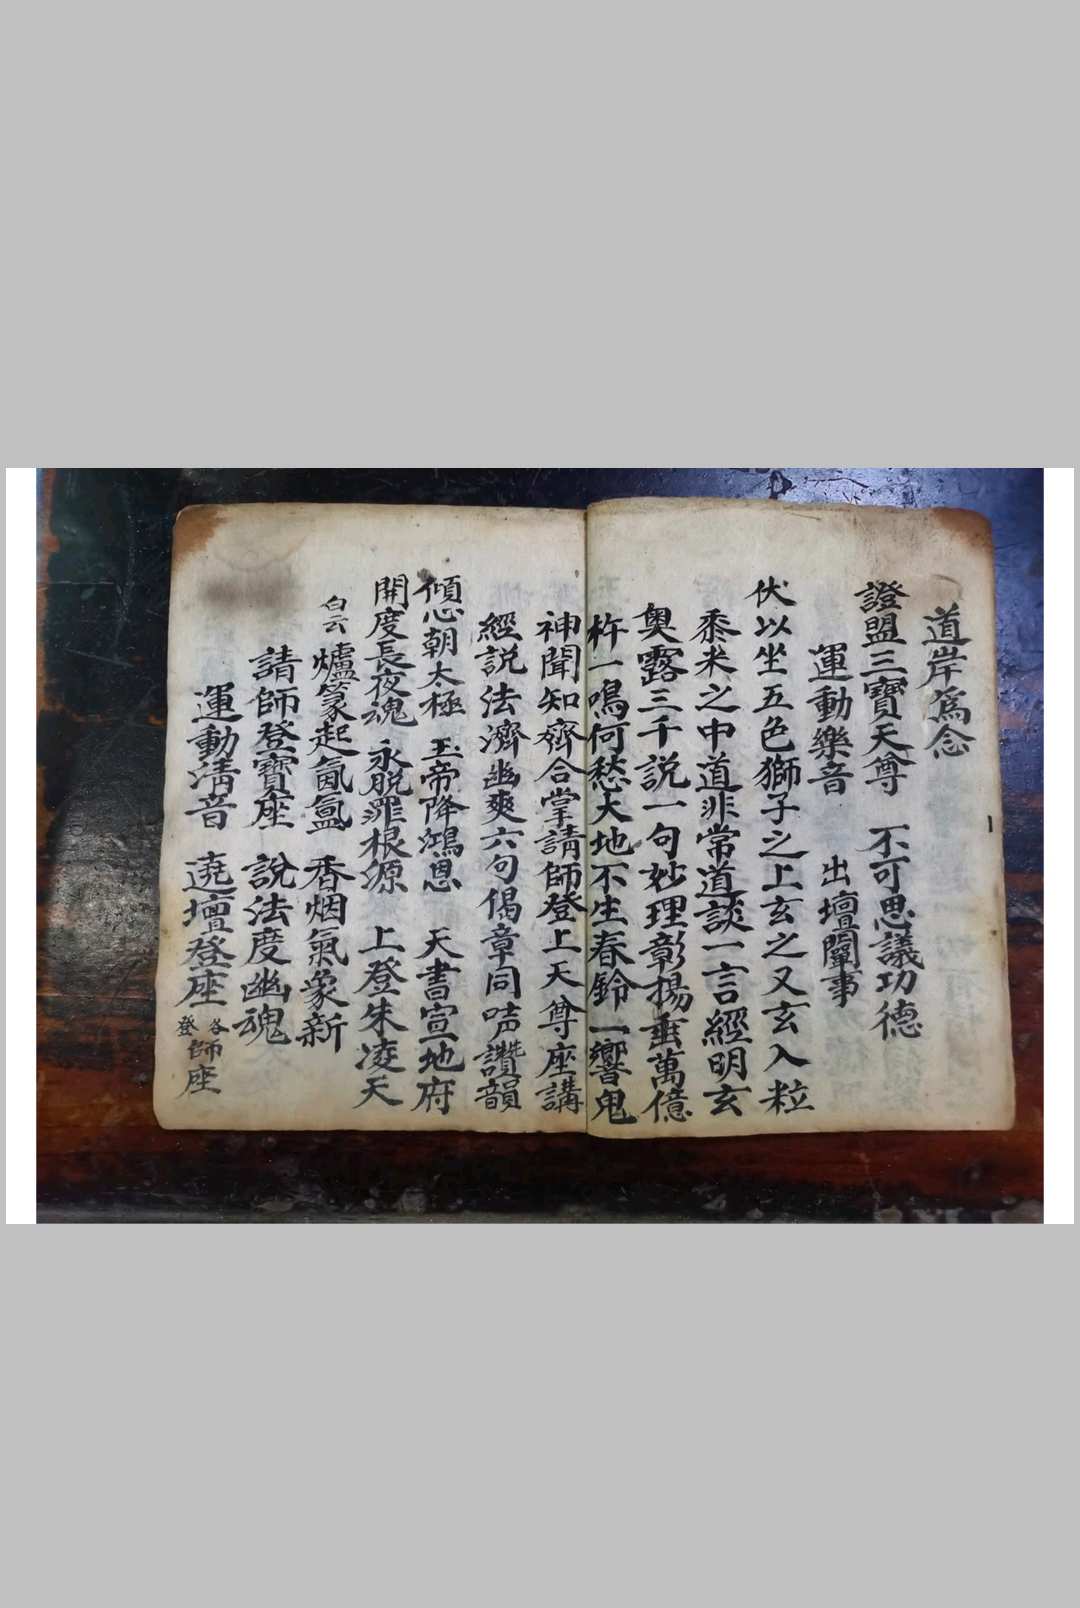 道岸為念
證盟三寶天尊　不可思議功德
運動樂音　出壇闡事
伏以坐五色獅子之上玄之又玄入粒
黍米之中道非常道談一言經明玄
奧露三千說一句妙理彰揚垂萬億
杵一鳴何愁大地不生春鈴一響鬼
神聞知齊合掌請師登上天尊座講
經說法濟幽爽六句偈章同唴讚韻
傾心朝太極　玉帝降鴻恩　天書宣地府
開度長夜魂　永脫罪根源　上登朱凌天
白云　爐篆起氤氳　香烟氣象新
請師登寶座　說法度幽魂
運動淸音　遶壇登座　各師座登